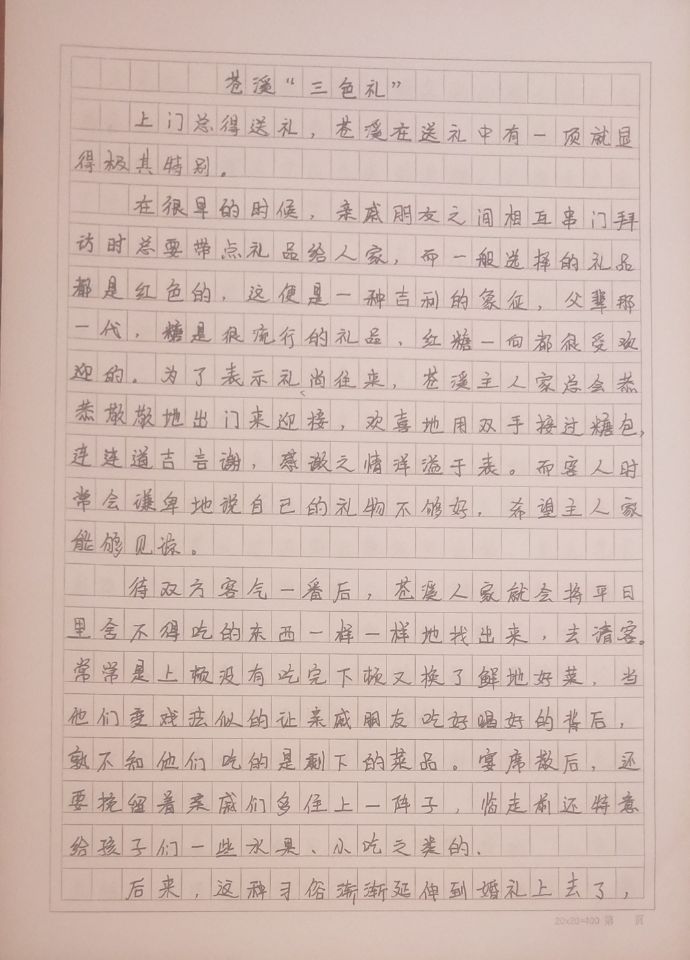 苍溪“三色礼”
上门总得送礼，苍溪在送礼中有一项就显
得极其特别。
在很早的时候，亲戚朋友之间相互串门拜
访时总要带点礼品给人家，而一般选择的礼品
都是红色的，这便是一种吉利的象征，父辈那
一代，糖是很流行的礼品、红糖一向都很受欢
迎的。为了表示礼尚往来，苍溪主人家总会恭
恭敬敬地出门来迎接，欢喜地用双手接过糖包，
连连道吉言谢，感激之情洋溢于表。而客人时
常会谦卑地说自己的礼物不够好，希望主人家
能够见谅。
待双方客气一番后，苍溪人家就会将平日
里舍不得吃的东西一样一样地找出来，去请客。
常常是上顿没有吃完下顿又换了鲜地好菜，当
他们变戏法似的让亲戚朋友吃好喝好的背后，
孰不知他们吃的是剩下的菜品。宴席散后，还
要挽留着亲戚们多住上一阵子，临走前还特意
给孩子们一些水果、小吃之类的.
后来，这种习俗渐渐延伸到婚礼上去了，
20×20=400 第 页